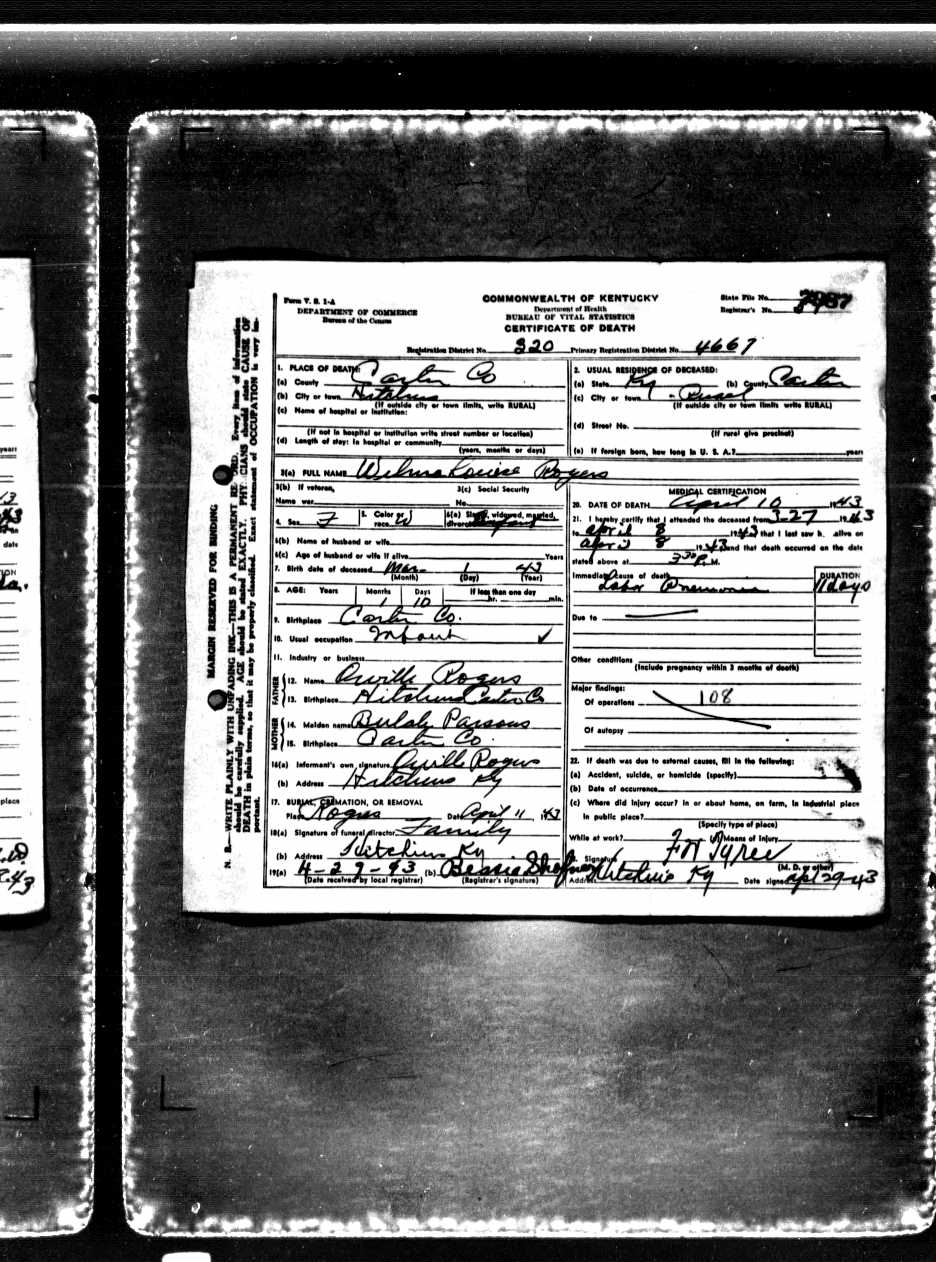 Form V. S. 1-A
DEPARTMENT OF COMMERCE
Bureau of the Census
COMMONWEALTH OF KENTUCKY
Department of Health
BUREAU OF VITAL STATISTICS
CERTIFICATE OF DEATH
State File No. 7987
Registrar's No.
Registration District No. 320 Primary Registration District No. 4667
MARGIN RESERVED FOR BINDING
N. B.—WRITE PLAINLY WITH UNFADING INK—THIS IS A PERMANENT RECORD. Every item of information
should be carefully supplied. AGE should be stated EXACTLY. PHYSICIANS should state CAUSE OF
DEATH in plain terms, so that it may be properly classified. Exact statement of OCCUPATION is very im-
portant.
1. PLACE OF DEATH:
(a) County Carter Co
(b) City or town Hitchins
(If outside city or town limits, write RURAL)
(c) Name of hospital or institution:
(If not in hospital or institution write street number or location)
(d) Length of stay: In hospital or community
(years, months or days)
2. USUAL RESIDENCE OF DECEASED:
(a) State Ky (b) County Carter
(c) City or town Rural
(If outside city or town limits write RURAL)
(d) Street No.
(If rural give precinct)
(e) If foreign born, how long in U. S. A.? years
3(a) FULL NAME Wilma Louise Rogers
3(b) If veteran, 3(c) Social Security
Name war No.
4. Sex F 5. Color or race W 6(a) Single, widowed, married, divorced Infant
6(b) Name of husband or wife
6(c) Age of husband or wife if alive Years
7. Birth date of deceased Mar 1 43
(Month) (Day) (Year)
8. AGE: Years Months Days If less than one day
1 10 hr. min.
9. Birthplace Carter Co.
10. Usual occupation Infant ✓
11. Industry or business
FATHER
12. Name Orville Rogers
13. Birthplace Hitchins Carter Co
MOTHER
14. Maiden name Bulah Parsons
15. Birthplace Carter Co.
16(a) Informant's own signature Orville Rogers
(b) Address Hitchins Ky
17. BURIAL, CREMATION, OR REMOVAL
Place Rogers Date April 11, 1943
18(a) Signature of funeral director Family
(b) Address Hitchins Ky
19(a) 4-29-43 (b) Bessie
(Date received by local registrar) (Registrar's signature)
MEDICAL CERTIFICATION
20. DATE OF DEATH April 10 1943
21. I hereby certify that I attended the deceased from 3-27 1943
to april 8 1943 that I last saw h alive on
april 8 1943 and that death occurred on the date
stated above at 3 30 P. M.
Immediate cause of death DURATION
Lobar Pneumonia 11 days
Due to
Other conditions
(Include pregnancy within 3 months of death)
Major findings:
Of operations 108
Of autopsy
22. If death was due to external causes, fill in the following:
(a) Accident, suicide, or homicide (specify)
(b) Date of occurrence
(c) Where did injury occur? in or about home, on farm, in industrial place
in public place?
(Specify type of place)
While at work? (e) Means of injury
Signature
(M. D. or other)
Address Hitchins Ky Date signed Apl 29-43